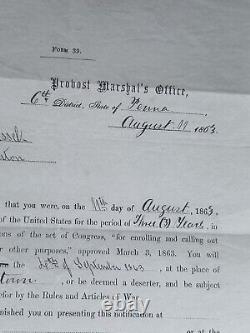 Form 39.
Provost Marshal's Office,
6th District, State of Penna
August 11 1863
that you were, on the 11th day of August, 1863
of the United States for the period of Three (3) Years, in
ons of the act of Congress, "for enrolling and calling out
other purposes," approved March 3, 1863. You will
the of September 1863, at the place of
town, or be deemed a deserter, and be subject
efor by the Rules and Articles of War.
nished you on presenting this notification at